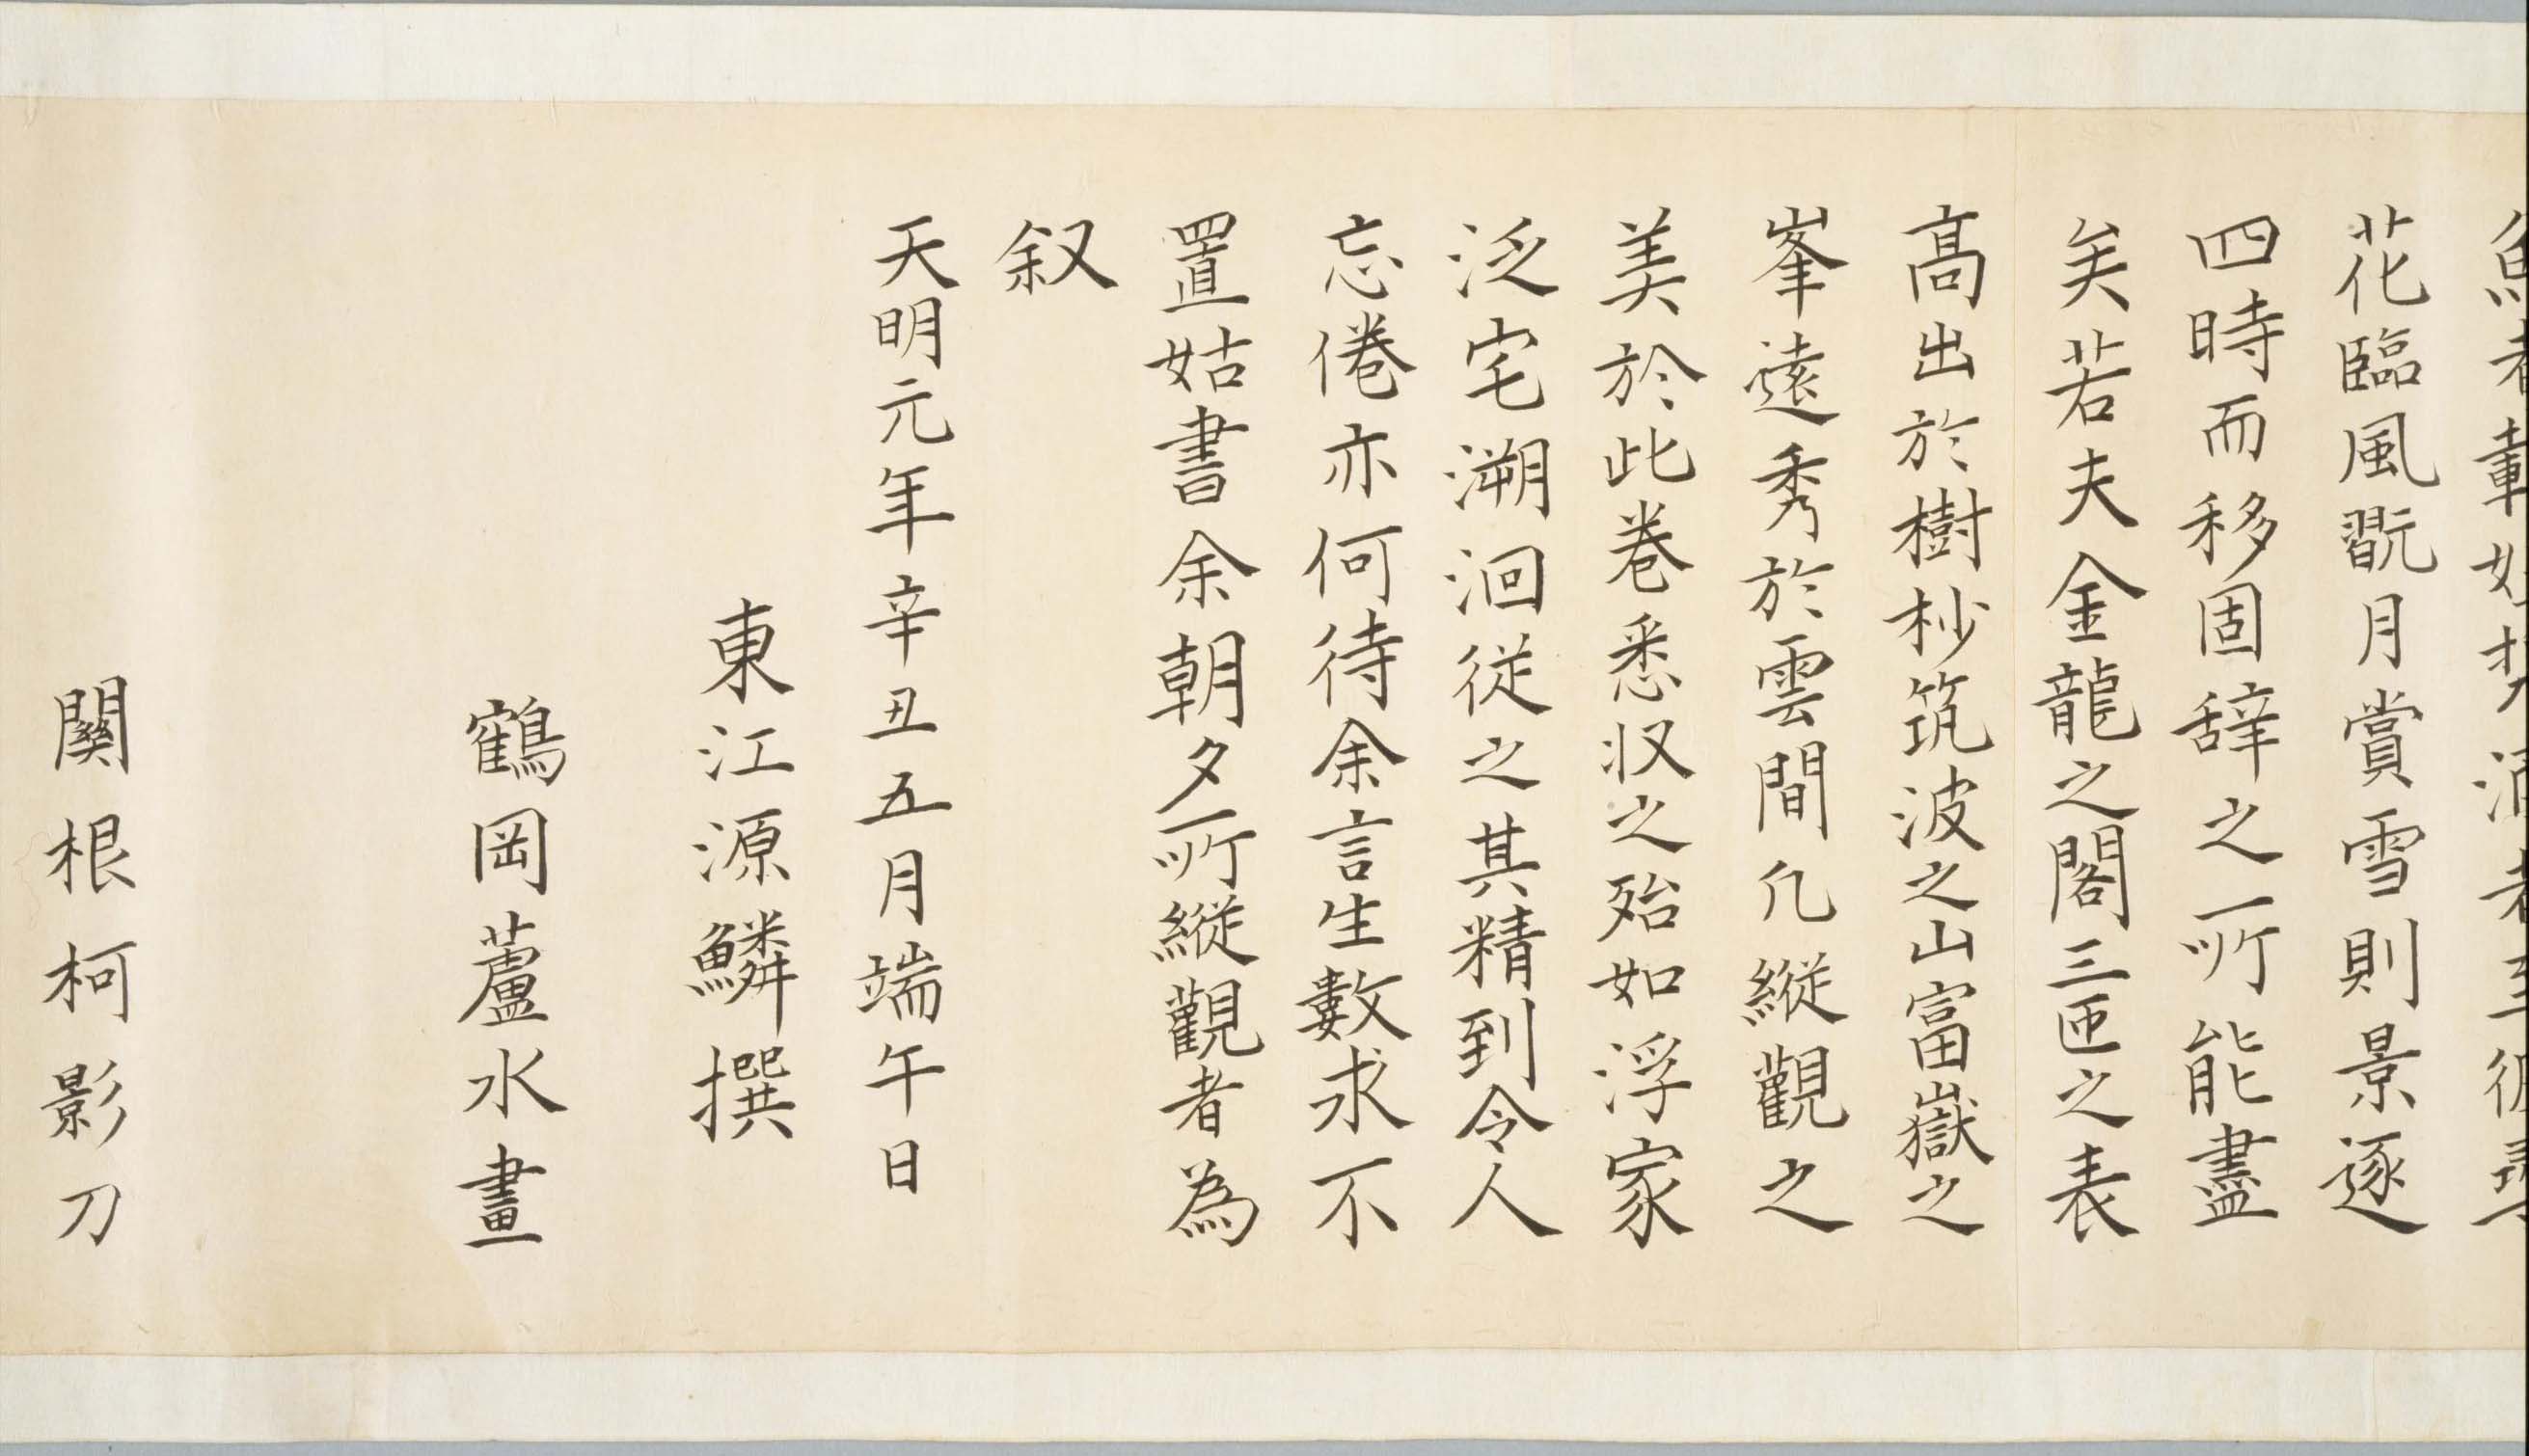 魚者載妓
花臨風翫月賞雪則景逐
四時而移固辞之所能盡
矣若夫金龍之閣三匝之表
高出於樹杪筑波之山富嶽之
峯遠秀於雲間凢縦觀之
美於此巻悉収之殆如浮家
泛宅溯洄従之其精到令人
忘倦亦何待余言生數求不
置姑書余朝夕所縦觀者為
叙
天明元年辛丑五月端午日
東江源鱗撰
鶴岡蘆水畫
關根柯影刀